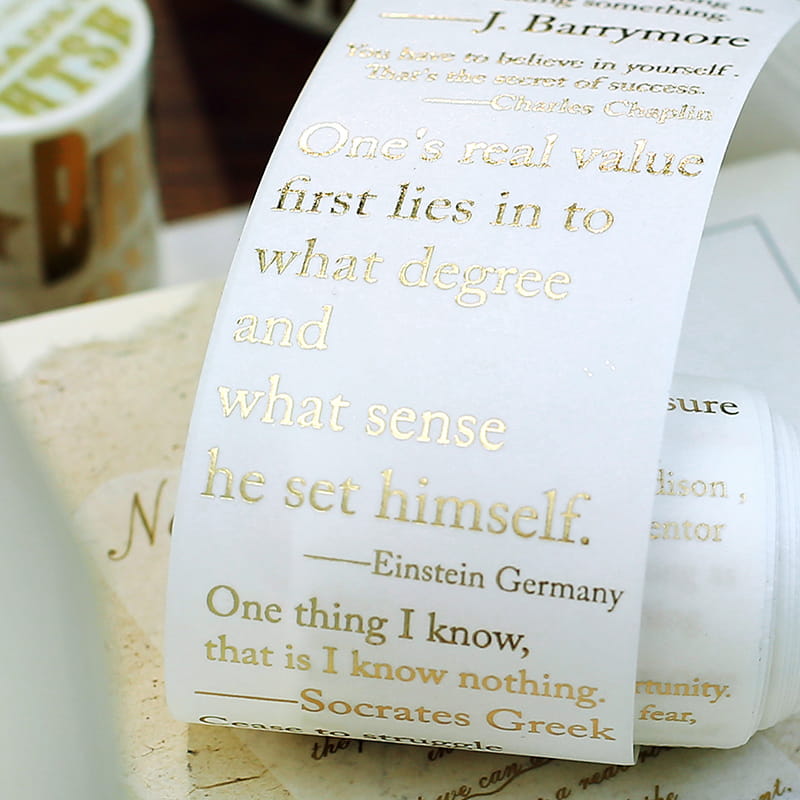 something.
——J. Barrymore
You have to believe in yourself.
That's the secret of success.
——Charles Chaplin
One's real value
first lies in to
what degree
and
what sense
he set himself.
——Einstein Germany
One thing I know,
that is I know nothing.
——Socrates Greek
Cease to struggle
sure
dison ,
entor
rtunity.
fear,
we can